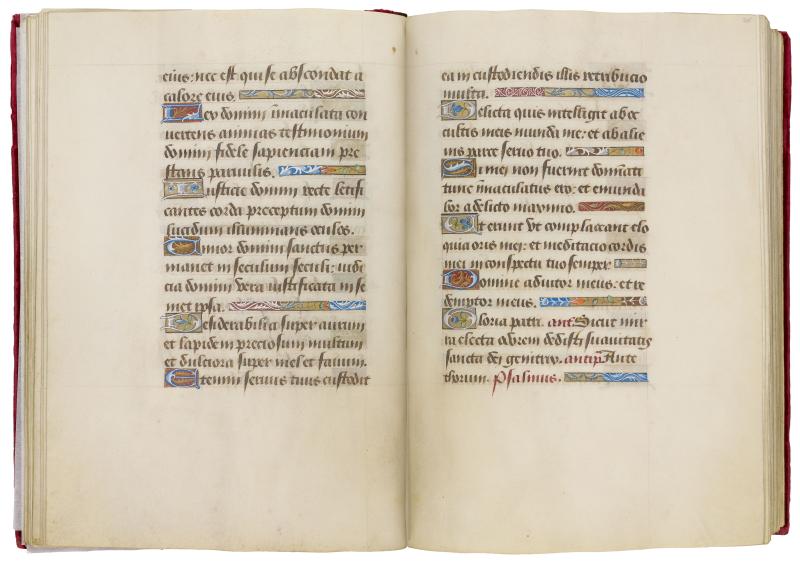 eius: nec est qui se abscondat a
calore eius.
Lex domini īmaculata con
vertens animas testimonium
domini fidele sapienciam pre
stans parvulis.
Iusticie domini recte letifi
cantes corda preceptum domini
lucidum illuminans oculos.
Timor domini sanctus per
manet in seculum seculi: iudi
cia domini vera iustificata in se
met ipsa.
Desiderabilia super aurum
et lapidem preciosum multum
et dulciora super mel et favum.
Etenim servus tuus custodit
ea in custodiendis illis retribucio
multa.
Delicta quis intelligit ab oc
cultis meis munda me: et ab alie
nis parce servo tuo.
Si mei non fuerint dominati
tunc īmaculatus ero: et emunda
bor a delicto maximo.
Et erunt ut complaceant elo
quia oris mei: et meditacio cordis
mei in conspectu tuo semper
Domine adiutor meus: et re
demptor meus.
Gloria patri. ant. Sicut mir
ra electa odorem dedisti suavitatis
sancta dei genitrix. antipħ Ante
thorum. Psalmus.